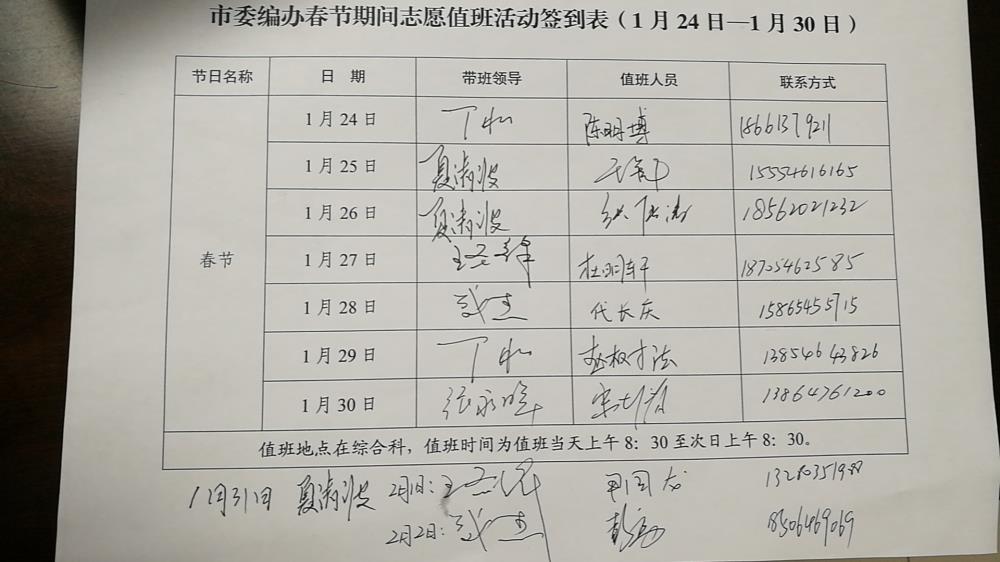 市委编办春节期间志愿值班活动签到表（1月24日—1月30日）
节日名称 日 期 带班领导 值班人员 联系方式
春节
1月24日 丁 陈明博 18661379211
1月25日 夏清波 15554616165
1月26日 夏清波 18562021232
1月27日 王 杜 18705462585
1月28日 代长庆 15865455715
1月29日 丁 13854643826
1月30日 张永 宋 13864761200
值班地点在综合科，值班时间为值班当天上午8：30至次日上午8：30。
1月31日 夏清波 2月1日：王 国
2月2日： 彭 18506469069